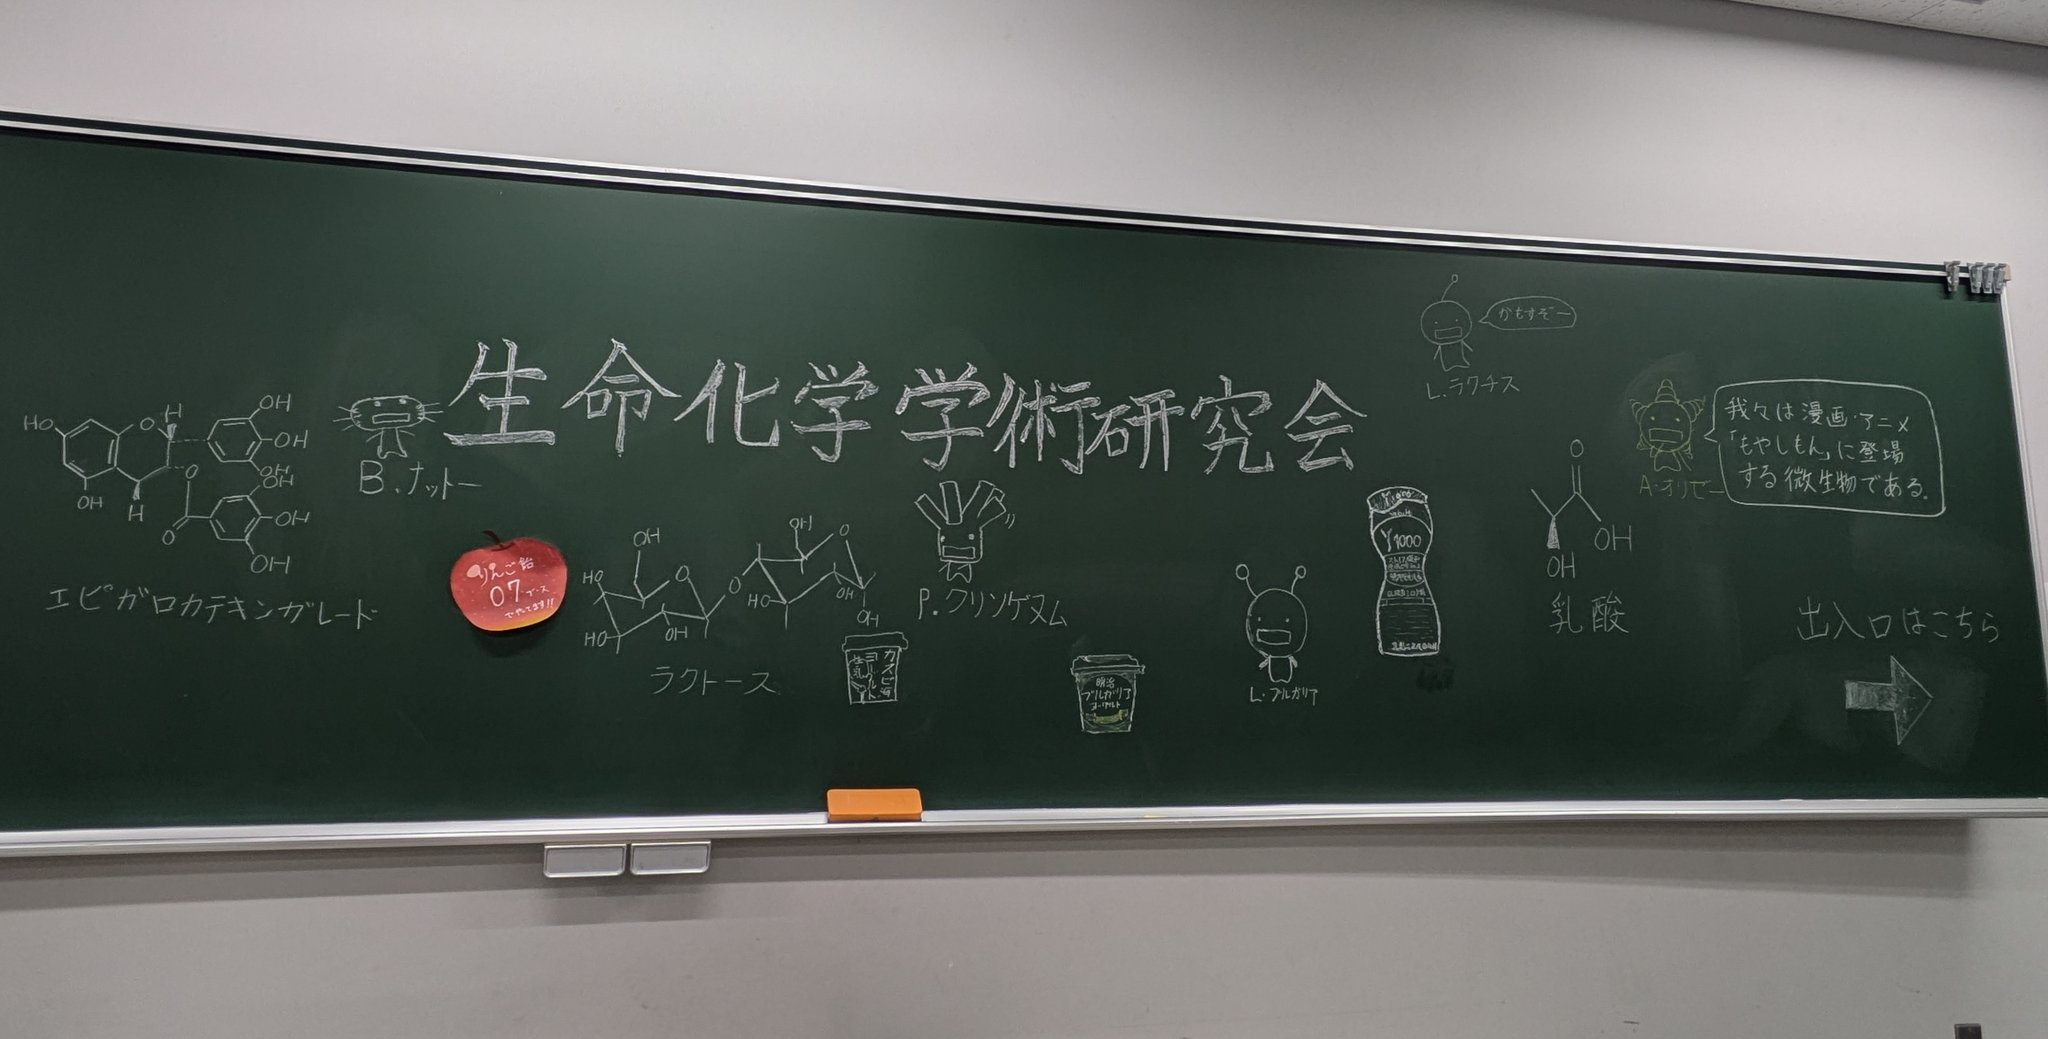 生命化学学術研究会
HO
O
H
OH
OH
OH
OH
OH
OH
OH
H
O
O
エピガロカテキンガレート
B.ナットー
りんご飴
07ブース
でやってます!!
OH
HO
O
HO
OH
O
OH
O
HO
OH
OH
ラクトース
カスピ海
ヨーグルト
生乳
P.クリソゲヌム
明治
ブルガリア
ヨーグルト
L.ブルガリア
Y1000
かもすぞー
L.ラクチス
O
OH
OH
乳酸
A.オリゼー
我々は漫画・アニメ
「もやしもん」に登場
する微生物である。
出入口はこちら